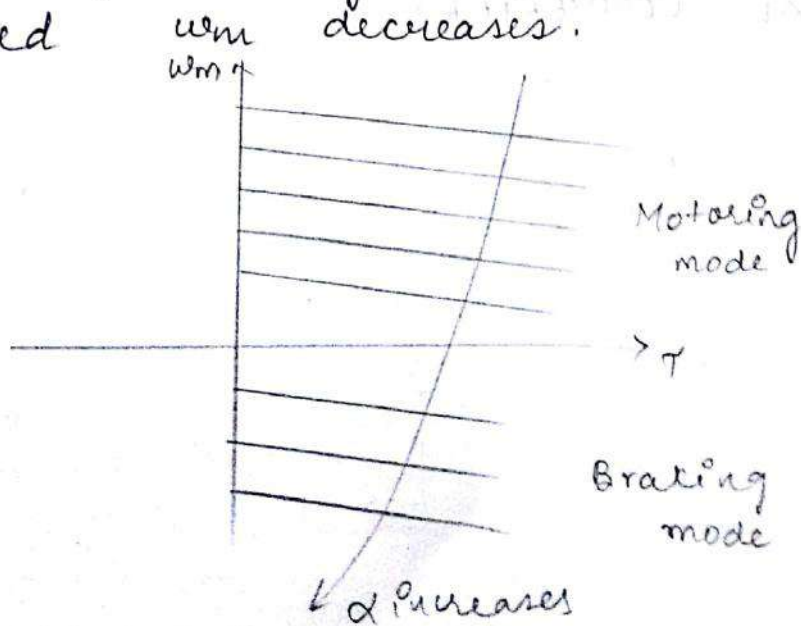 ed wm decreases.
wm
Motoring
mode
> T
Braking
mode
α increases